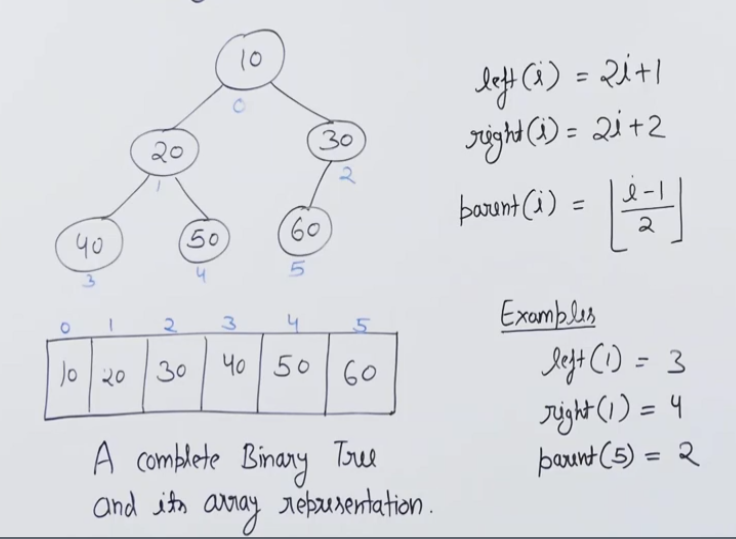 10
0
20
30
1
2
40
50
60
3
4
5
0 1 2 3 4 5
10 20 30 40 50 60
A complete Binary Tree
and its array representation.
left(i) = 2i+1
right(i) = 2i+2
parent(i) = ⌊i-1/2⌋
Examples
left(1) = 3
right(1) = 4
parent(5) = 2